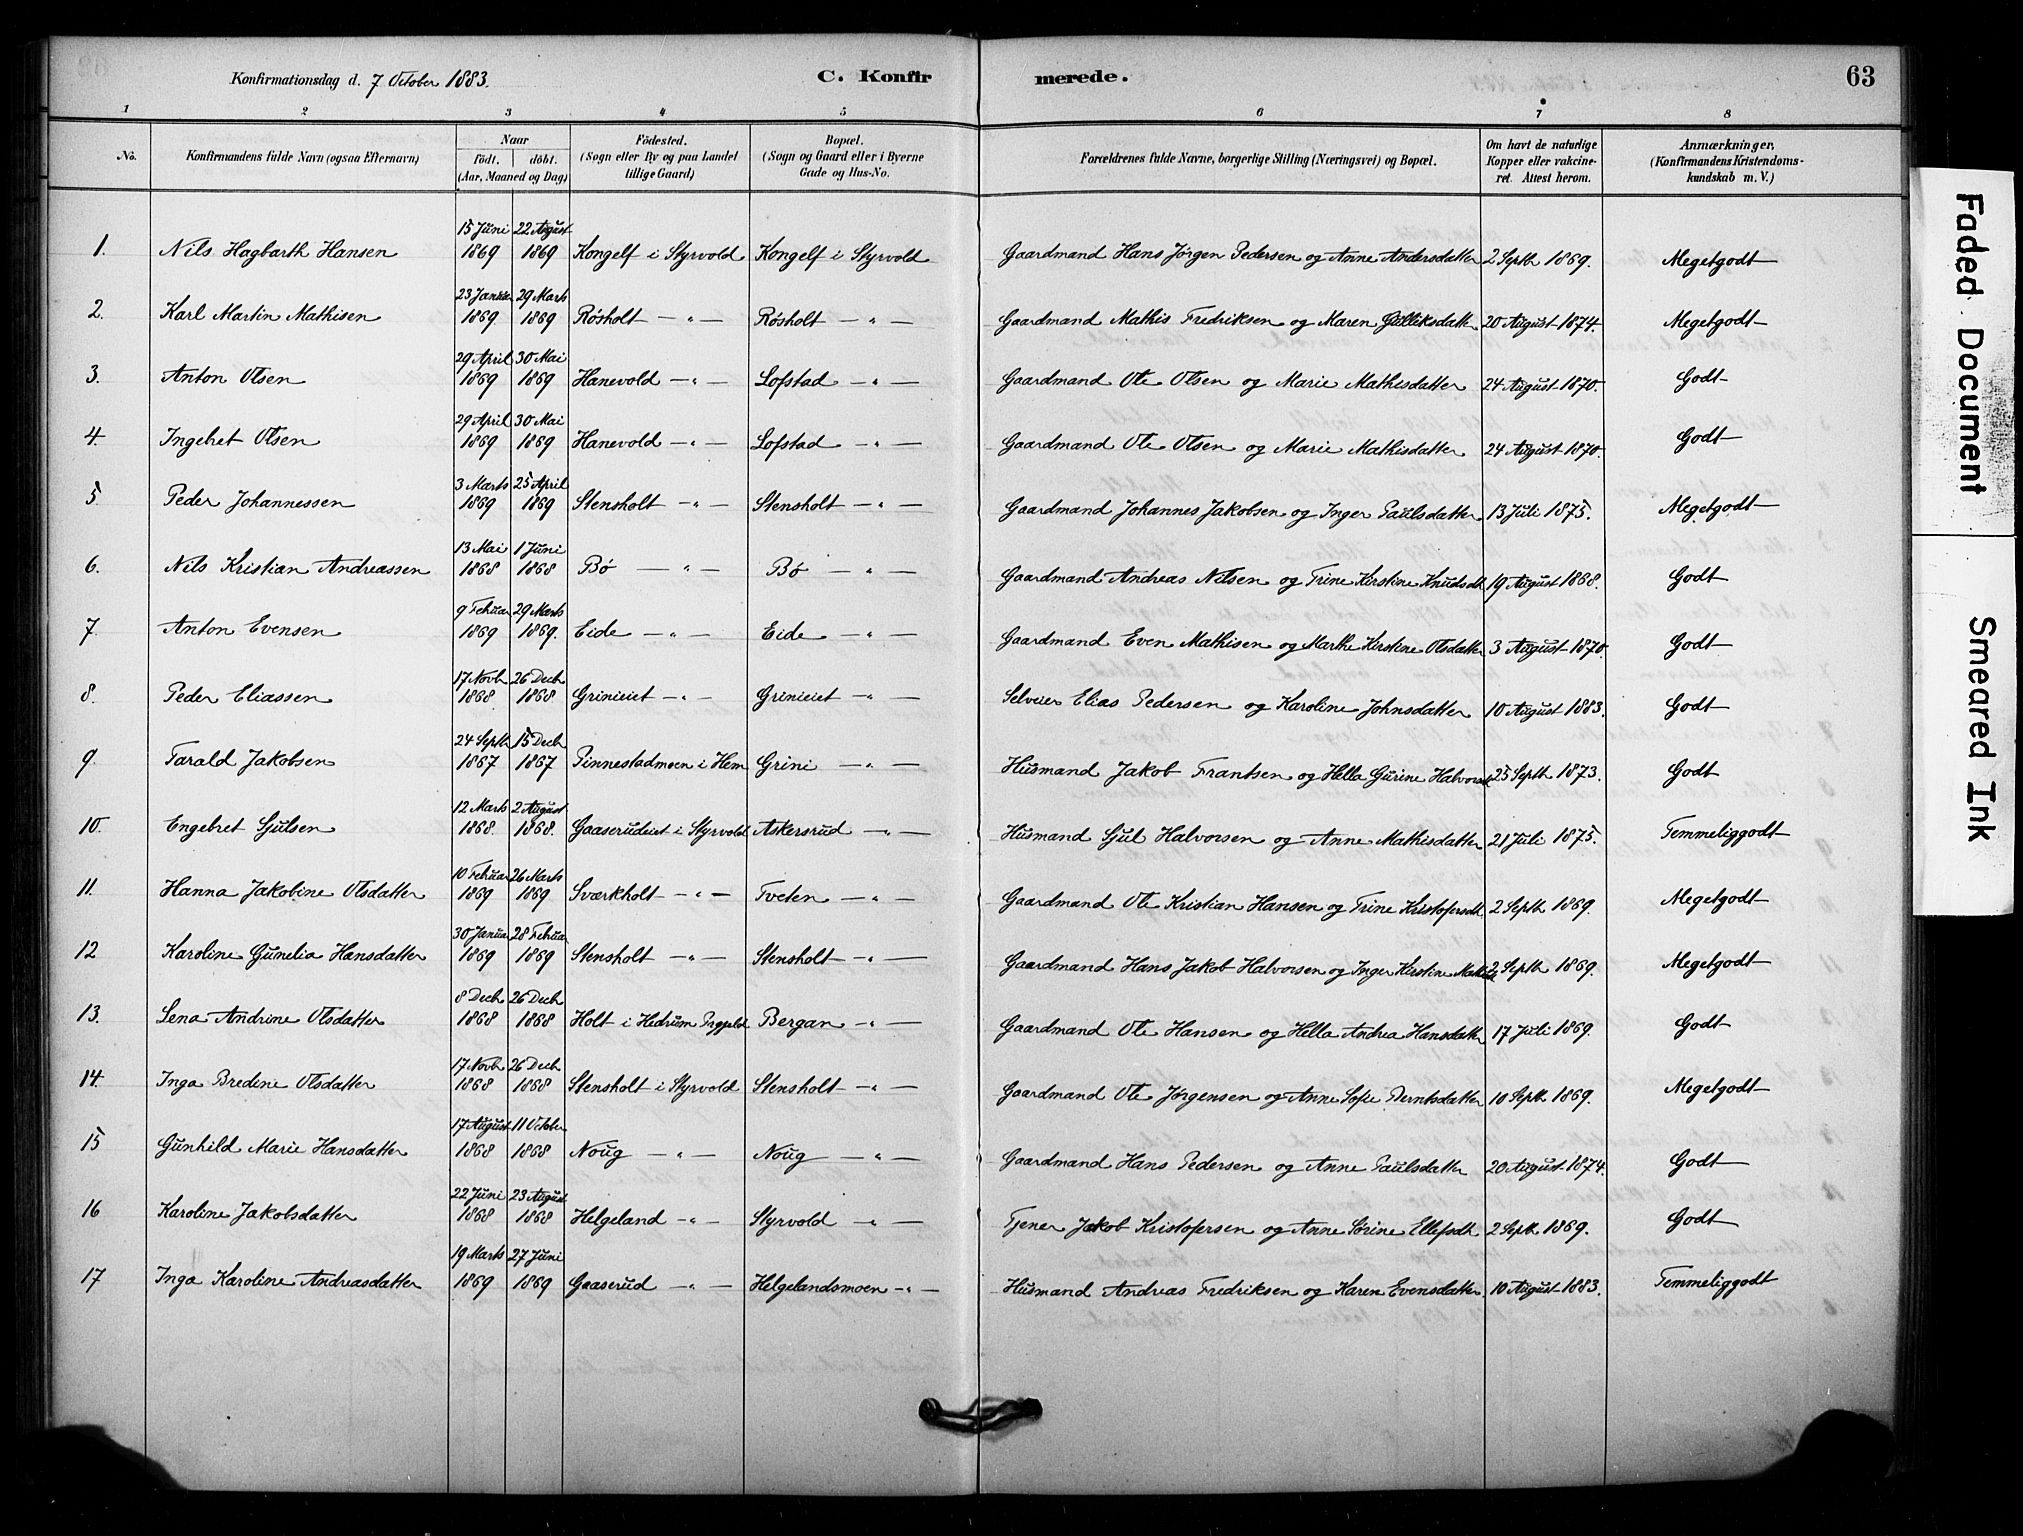 Konfirmationsdag d. 7 October 1883. C. Konfirmerede. 63
1 2 3 4 5 6 7 8
No. Konfirmandens fulde Navn (ogsaa Efternavn) Naar födt. döbt. (Aar, Maaned og Dag) Födested. (Sogn eller By og paa Landet tillige Gaard) Bopæl. (Sogn og Gaard eller i Byerne Gade og Hus-No. Forældrenes fulde Navne, borgerlige Stilling (Næringsvei) og Bopæl. Om havt de naturlige Kopper eller vakcineret. Attest herom. Anmærkninger. (Konfirmandens Kristendomskundskab m. V.)
1. Nils Hagbarth Hansen 15 Juni 1869 22 August 1869 Kongelf i Styrvold Kongelf i Styrvold Gaardmand Hans Jørgen Pedersen og Anne Andersdatter 2 Septb 1869. Megetgodt
2. Karl Martin Mathisen 23 Januar 1869 29 Marts 1869 Røsholt — „ — Røsholt — „ — Gaardmand Mathis Fredriksen og Maren Gulliksdatter 20 August 1874. Megetgodt
3. Anton Olsen 29 April 1869 30 Mai 1869 Hanevold — „ — Lofstad — „ — Gaardmand Ole Olsen og Marie Mathisdatter 24 August 1870. Godt
4. Ingebret Olsen 29 April 1869 30 Mai 1869 Hanevold — „ — Lofstad — „ — Gaardmand Ole Olsen og Marie Mathisdatter 24 August 1870. Godt
5 Peder Johannessen 3 Marts 1869 25 April 1869 Stensholt — „ — Stensholt — „ — Gaardmand Johannes Jakobsen og Inger Paulsdatter 13 Juli 1875. Megetgodt
6. Nils Kristian Andreassen 13 Mai 1868 1 Juni 1868 Bø — „ — Bø — „ — Gaardmand Andreas Nilsen og Trine Kirstine Knudsdt 19 August 1868. Godt
7. Anton Evensen 9 Februar 1869 29 Marts 1869. Eide — „ — Eide — „ — Gaardmand Even Mathisen og Marthe Kirstine Olsdatter 3 August 1870. Godt
8. Peder Eliassen 17 Novb 1868 26 Decb 1868 Grinieiet — „ — Grinieiet — „ — Selveier Elias Pedersen og Karoline Johnsdatter 10 August 1883. Godt
9 Tarald Jakobsen 24 Septb 1867 15 Decb 1867 Pinnestadmoen i Hem Grini — „ — Husmand Jakob Frantsen og Hella Gurine Halvorsdt 25 Septb 1873. Godt
10. Engebret Sjulsen 12 Marts 1868. 2 August 1868. Gaaserudeiet i Styrvold Askersrud — „ — Husmand Sjul Halvorsen og Anne Mathisdatter 21 Juli 1875. Temmeliggodt
11. Hanna Jakobine Olsdatter 10 Februar 1869 26 Marts 1869 Sværkholt — „ — Tveten — „ — Gaardmand Ole Kristian Hansen og Trine Kristofersdt 2 Septb 1869. Megetgodt
12 Karoline Gunelia Hansdatter 30 Januar 1869 28 Februar 1869 Stensholt — „ — Stensholt — „ — Gaardmand Hans Jakob Halvorsen og Inger Kirstine 2 Septb 1869. Megetgodt
13. Lena Andrine Olsdatter 8 Decb 1868 26 Decb 1868 Holt i Hedrum Prgjeld Bergan — „ — Gaardmand Ole Hansen og Hella Andrea Hansdatter 17 Juli 1869. Godt
14. Inga Bredine Olsdatter 17 Novb 1868 26 Decb 1868 Stensholt i Styrvold Stensholt — „ — Gaardmand Ole Jørgensen og Anne Sofie Berntsdatter 10 Septb 1869. Megetgodt
15 Gunhild Marie Hansdatter 17 August 1868 11 October 1868 Noug — „ — Noug — „ — Gaardmand Hans Pedersen og Anne Paulsdatter 20 August 1874. Godt
16 Karoline Jakobsdatter 22 Juni 1868 23 August 1868 Helgeland — „ — Styrvold — „ — Tjener Jakob Kristofersen og Anne Sørine Ellefsdt 2 Septb 1869. Godt
17 Inga Karoline Andreasdatter 19 Marts 1869 27 Juni 1869 Gaaserud — „ — Helgelandsmoen — „ — Husmand Andreas Fredriksen og Karen Evensdatter 10 August 1883. Temmeliggodt
Faded Document
Smeared Ink